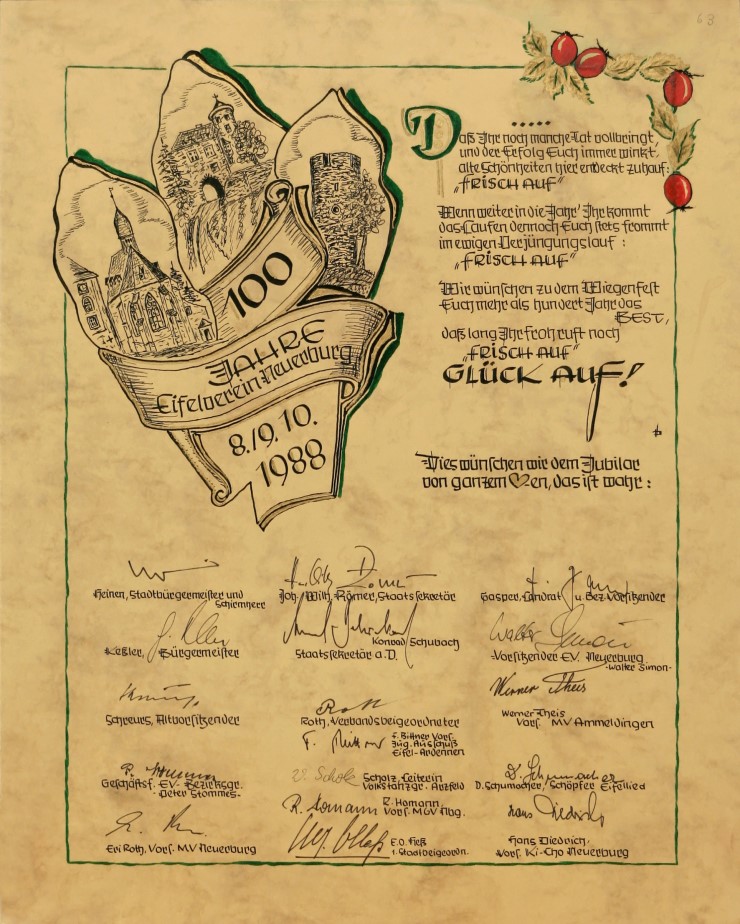 63
.....
Daß Ihr noch manche Tat vollbringt,
und der Erfolg Euch immer winkt,
alte Schönheiten hier entdeckt zuhauf:
„FRISCH AUF"
Wenn weiter in die Jahr' Ihr kommt
das Laufen dennoch Euch stets frommt
im ewigen Verjüngungslauf:
„FRISCH AUF"
Wir wünschen zu dem Wiegenfest
Euch mehr als hundert Jahr das
BEST,
daß lang Ihr froh ruft noch
„FRISCH AUF"
GLÜCK AUF!
100
JAHRE
Eifelverein-Neuerburg
8./9.10.
1988
Dies wünschen wir dem Jubilar
von ganzem ♡en, das ist wahr:
Heinen, Stadtbürgermeister und
Schirmherr
Joh. Wilh. Römer, Staatssekretär
Gasper, Landrat u. Bez. Vorsitzender
Keßler, Bürgermeister
Konrad Schubach
Staatssekretär a.D.
Walter Simon
-Vorsitzender EV. Neuerburg
-Walter Simon-
Schreurs, Altvorsitzender
Roth
Roth, Verbandsbeigeordneter
Werner Theis
Werner Theis
Vors. MV Ammeldingen
F. Bittner Vors.
Jug. Ausschuß
Eifel-Ardennen
P. Stommes
Geschäftsf. EV-Bezirksgr.
-Peter Stommes-
U. Scholz
Scholz, Leiterin
Volkstanzgr. Arzfeld
D. Schumacher
D. Schumacher, Schöpfer Eifellied
R. Homann
R. Homann
Vors. MGV Nbg.
Hans Diedrich
Eri Roth, Vors. MV Neuerburg
E.O. Fieß
1. Stadtbeigeordn.
Hans Diedrich,
Vors. Ki-Cho Neuerburg